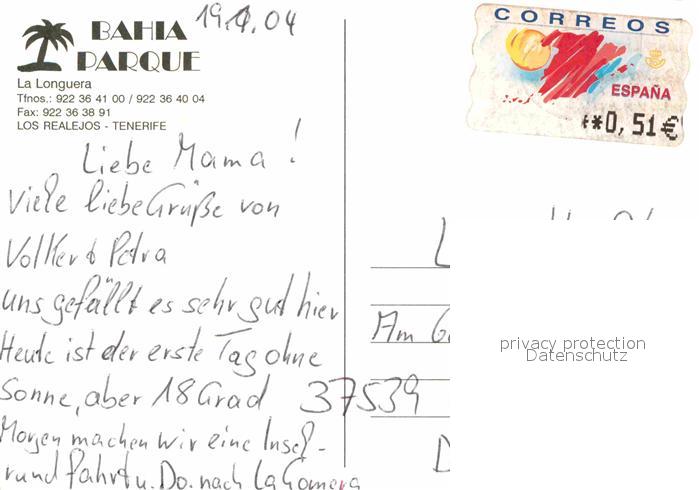 BAHIA
PARQUE
La Longuera
Tfnos.: 922 36 41 00 / 922 36 40 04
Fax: 922 36 38 91
LOS REALEJOS - TENERIFE
19.1.04
CORREOS
ESPAÑA
*0,51€
Liebe Mama!
Viele liebe Grüße von
Volker & Petra
uns gefällt es sehr gut hier
Heute ist der erste Tag ohne
Sonne, aber 18 Grad
Morgen machen wir eine Insel-
rundfahrt u. Do. nach La Gomera
Am
37539
privacy protection
Datenschutz